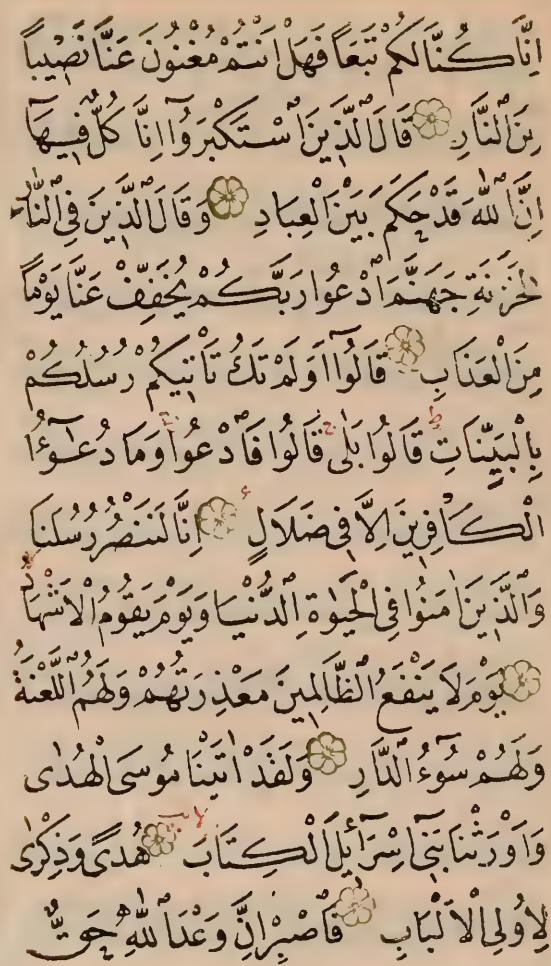 اِنَّا كُنَّا لَكُمْ تَبَعًا فَهَلْ اَنْتُمْ مُغْنُونَ عَنَّا نَصٖيبًا
مِنَ النَّارِ قَالَ الَّذٖينَ اسْتَكْبَرُوٓا اِنَّا كُلٌّ فٖيهَٓا
اِنَّ اللّٰهَ قَدْ حَكَمَ بَيْنَ الْعِبَادِ وَقَالَ الَّذٖينَ فِي النَّارِ
لِخَزَنَةِ جَهَنَّمَ ادْعُوا رَبَّكُمْ يُخَفِّفْ عَنَّا يَوْمًا
مِنَ الْعَذَابِ قَالُوٓا اَوَلَمْ تَكُ تَاْتٖيكُمْ رُسُلُكُمْ
بِالْبَيِّنَاتِ ط قَالُوا بَلٰى ج قَالُوا فَادْعُوا ج وَمَا دُعٰٓؤُا
الْكَافِرٖينَ اِلَّا فٖي ضَلَالٍ ع اِنَّا لَنَنْصُرُ رُسُلَنَا
وَالَّذٖينَ اٰمَنُوا فِي الْحَيٰوةِ الدُّنْيَا وَيَوْمَ يَقُومُ الْاَشْهَادُ لا
يَوْمَ لَا يَنْفَعُ الظَّالِمٖينَ مَعْذِرَتُهُمْ وَلَهُمُ اللَّعْنَةُ
وَلَهُمْ سُٓوءُ الدَّارِ وَلَقَدْ اٰتَيْنَا مُوسَى الْهُدٰى
وَاَوْرَثْنَا بَنٖٓي اِسْرَٓائٖلَ الْكِتَابَ لا هُدًى وَذِكْرٰى
لِاُولِي الْاَلْبَابِ فَاصْبِرْ اِنَّ وَعْدَ اللّٰهِ حَقٌّ